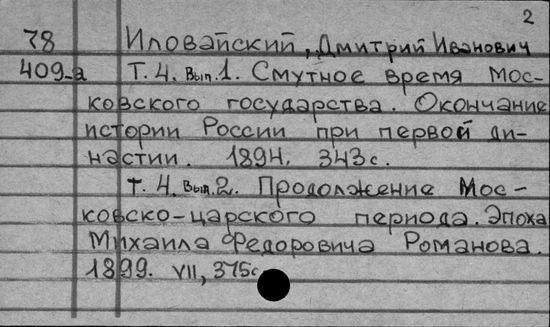 2
78 Иловайский, Дмитрий Иванович
409-а Т. 4. Вып. 1. Смутное время Мос-
ковского государства. Окончание
истории России при первой ди-
настии. 1894. 343 с.
Т. 4. Вып. 2. Продолжение Мос-
ковско-царского периода. Эпоха
Михаила Федоровича Романова.
1899. VII, 375с